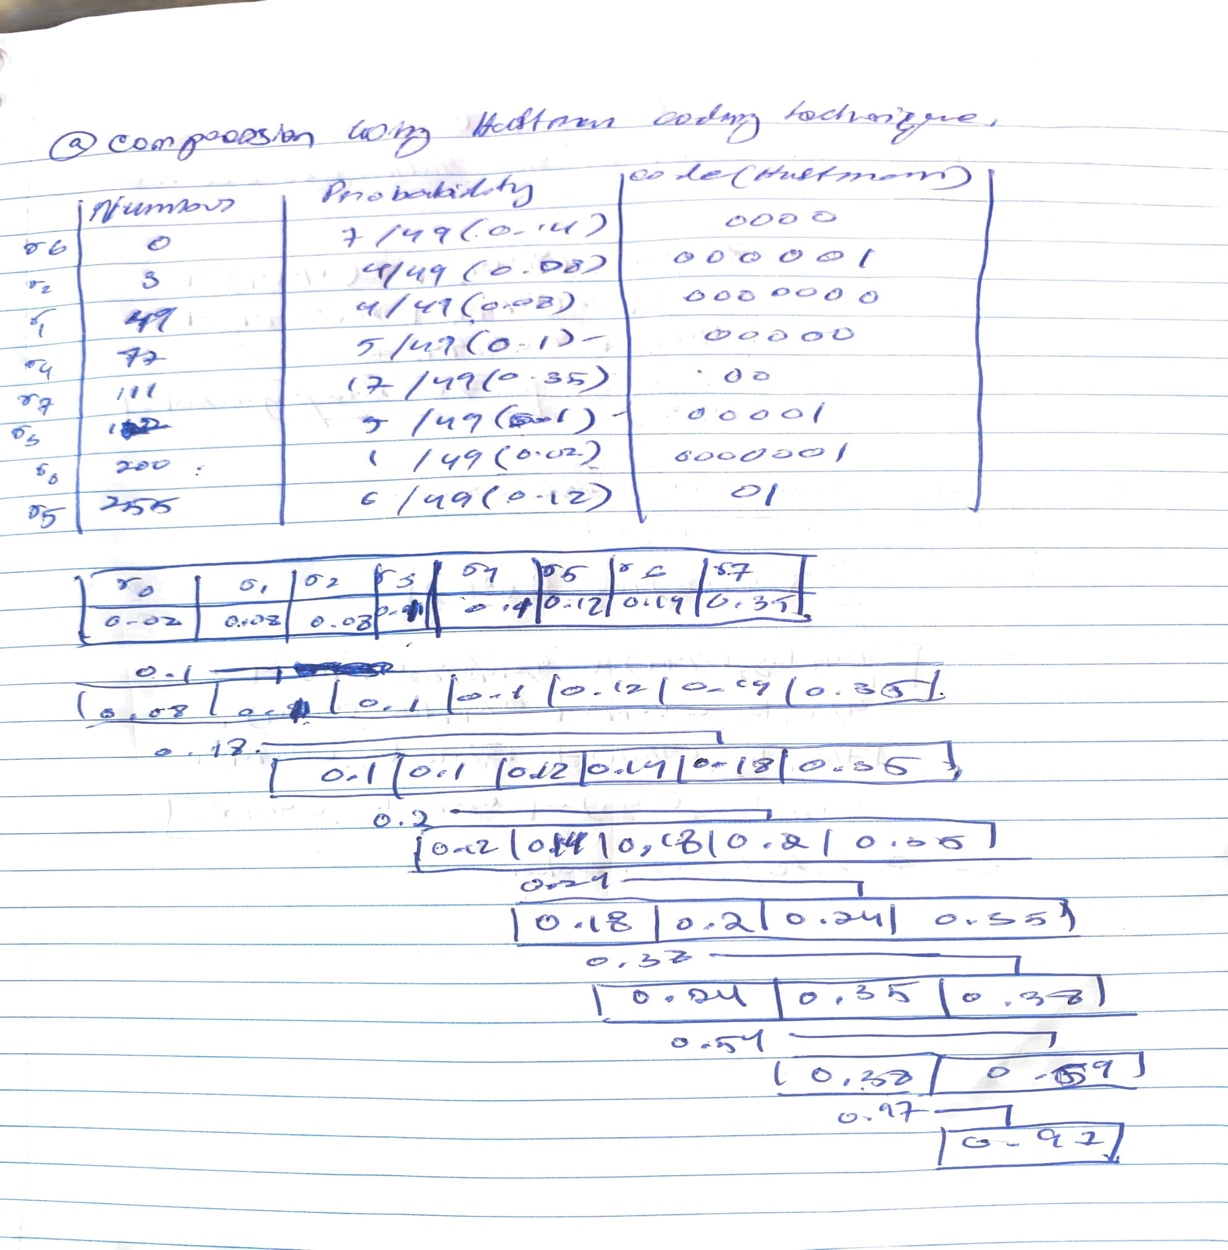 (a) Compression using Huffman coding technique.
Numbers Probability code (Huffman)
r6 0 7/49 (0.14) 0000
r2 3 4/49 (0.08) 000001
r1 49 4/49 (0.08) 0000000
r4 77 5/49 (0.1) 00000
r7 111 17/49 (0.35) 00
r3 5/49 (0.1) 00001
r0 200 1/49 (0.02) 0000001
r5 255 6/49 (0.12) 01
r0 r1 r2 r3 r4 r5 r6 r7
0.02 0.08 0.08 0.1 0.1 0.12 0.14 0.35
0.1
0.08 0.1 0.1 0.12 0.14 0.35
0.18
0.1 0.1 0.12 0.14 0.18 0.35
0.2
0.12 0.14 0.18 0.2 0.35
0.24
0.18 0.2 0.24 0.35
0.38
0.24 0.35 0.38
0.59
0.38 0.59
0.97
0.97